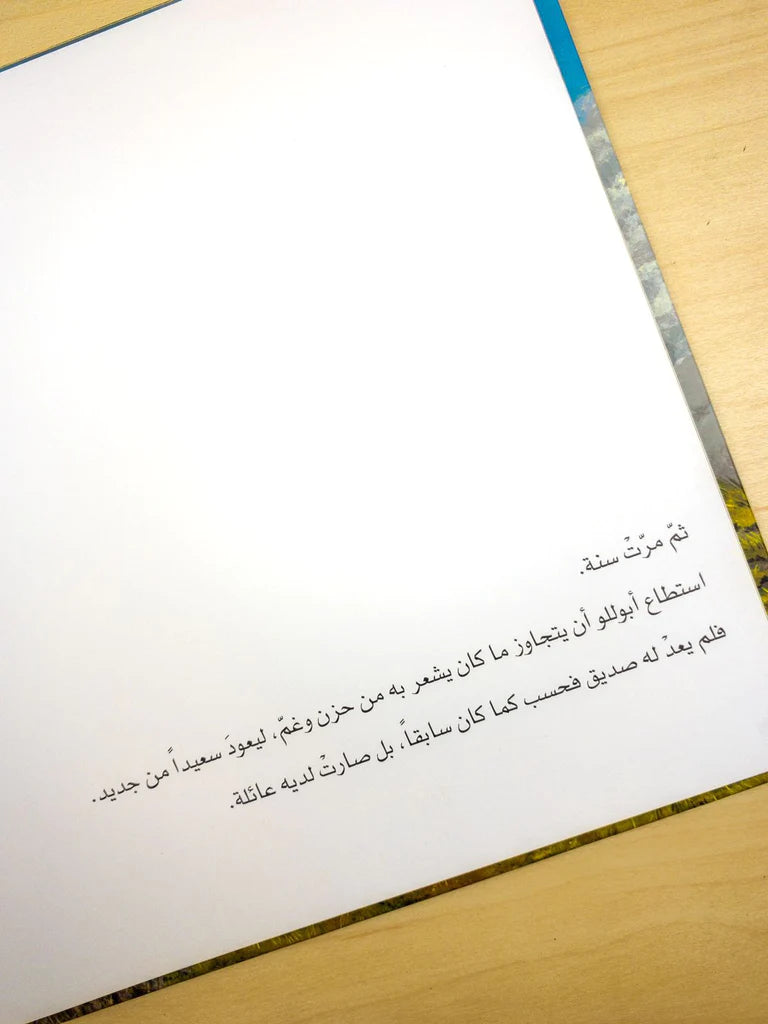 ثمّ مرّتْ سنة.
استطاع أبوللو أن يتجاوز ما كان يشعر به من حزن وغمّ، ليعودَ سعيداً من جديد.
فلم يعدْ له صديق فحسب كما كان سابقاً، بل صارتْ لديه عائلة.